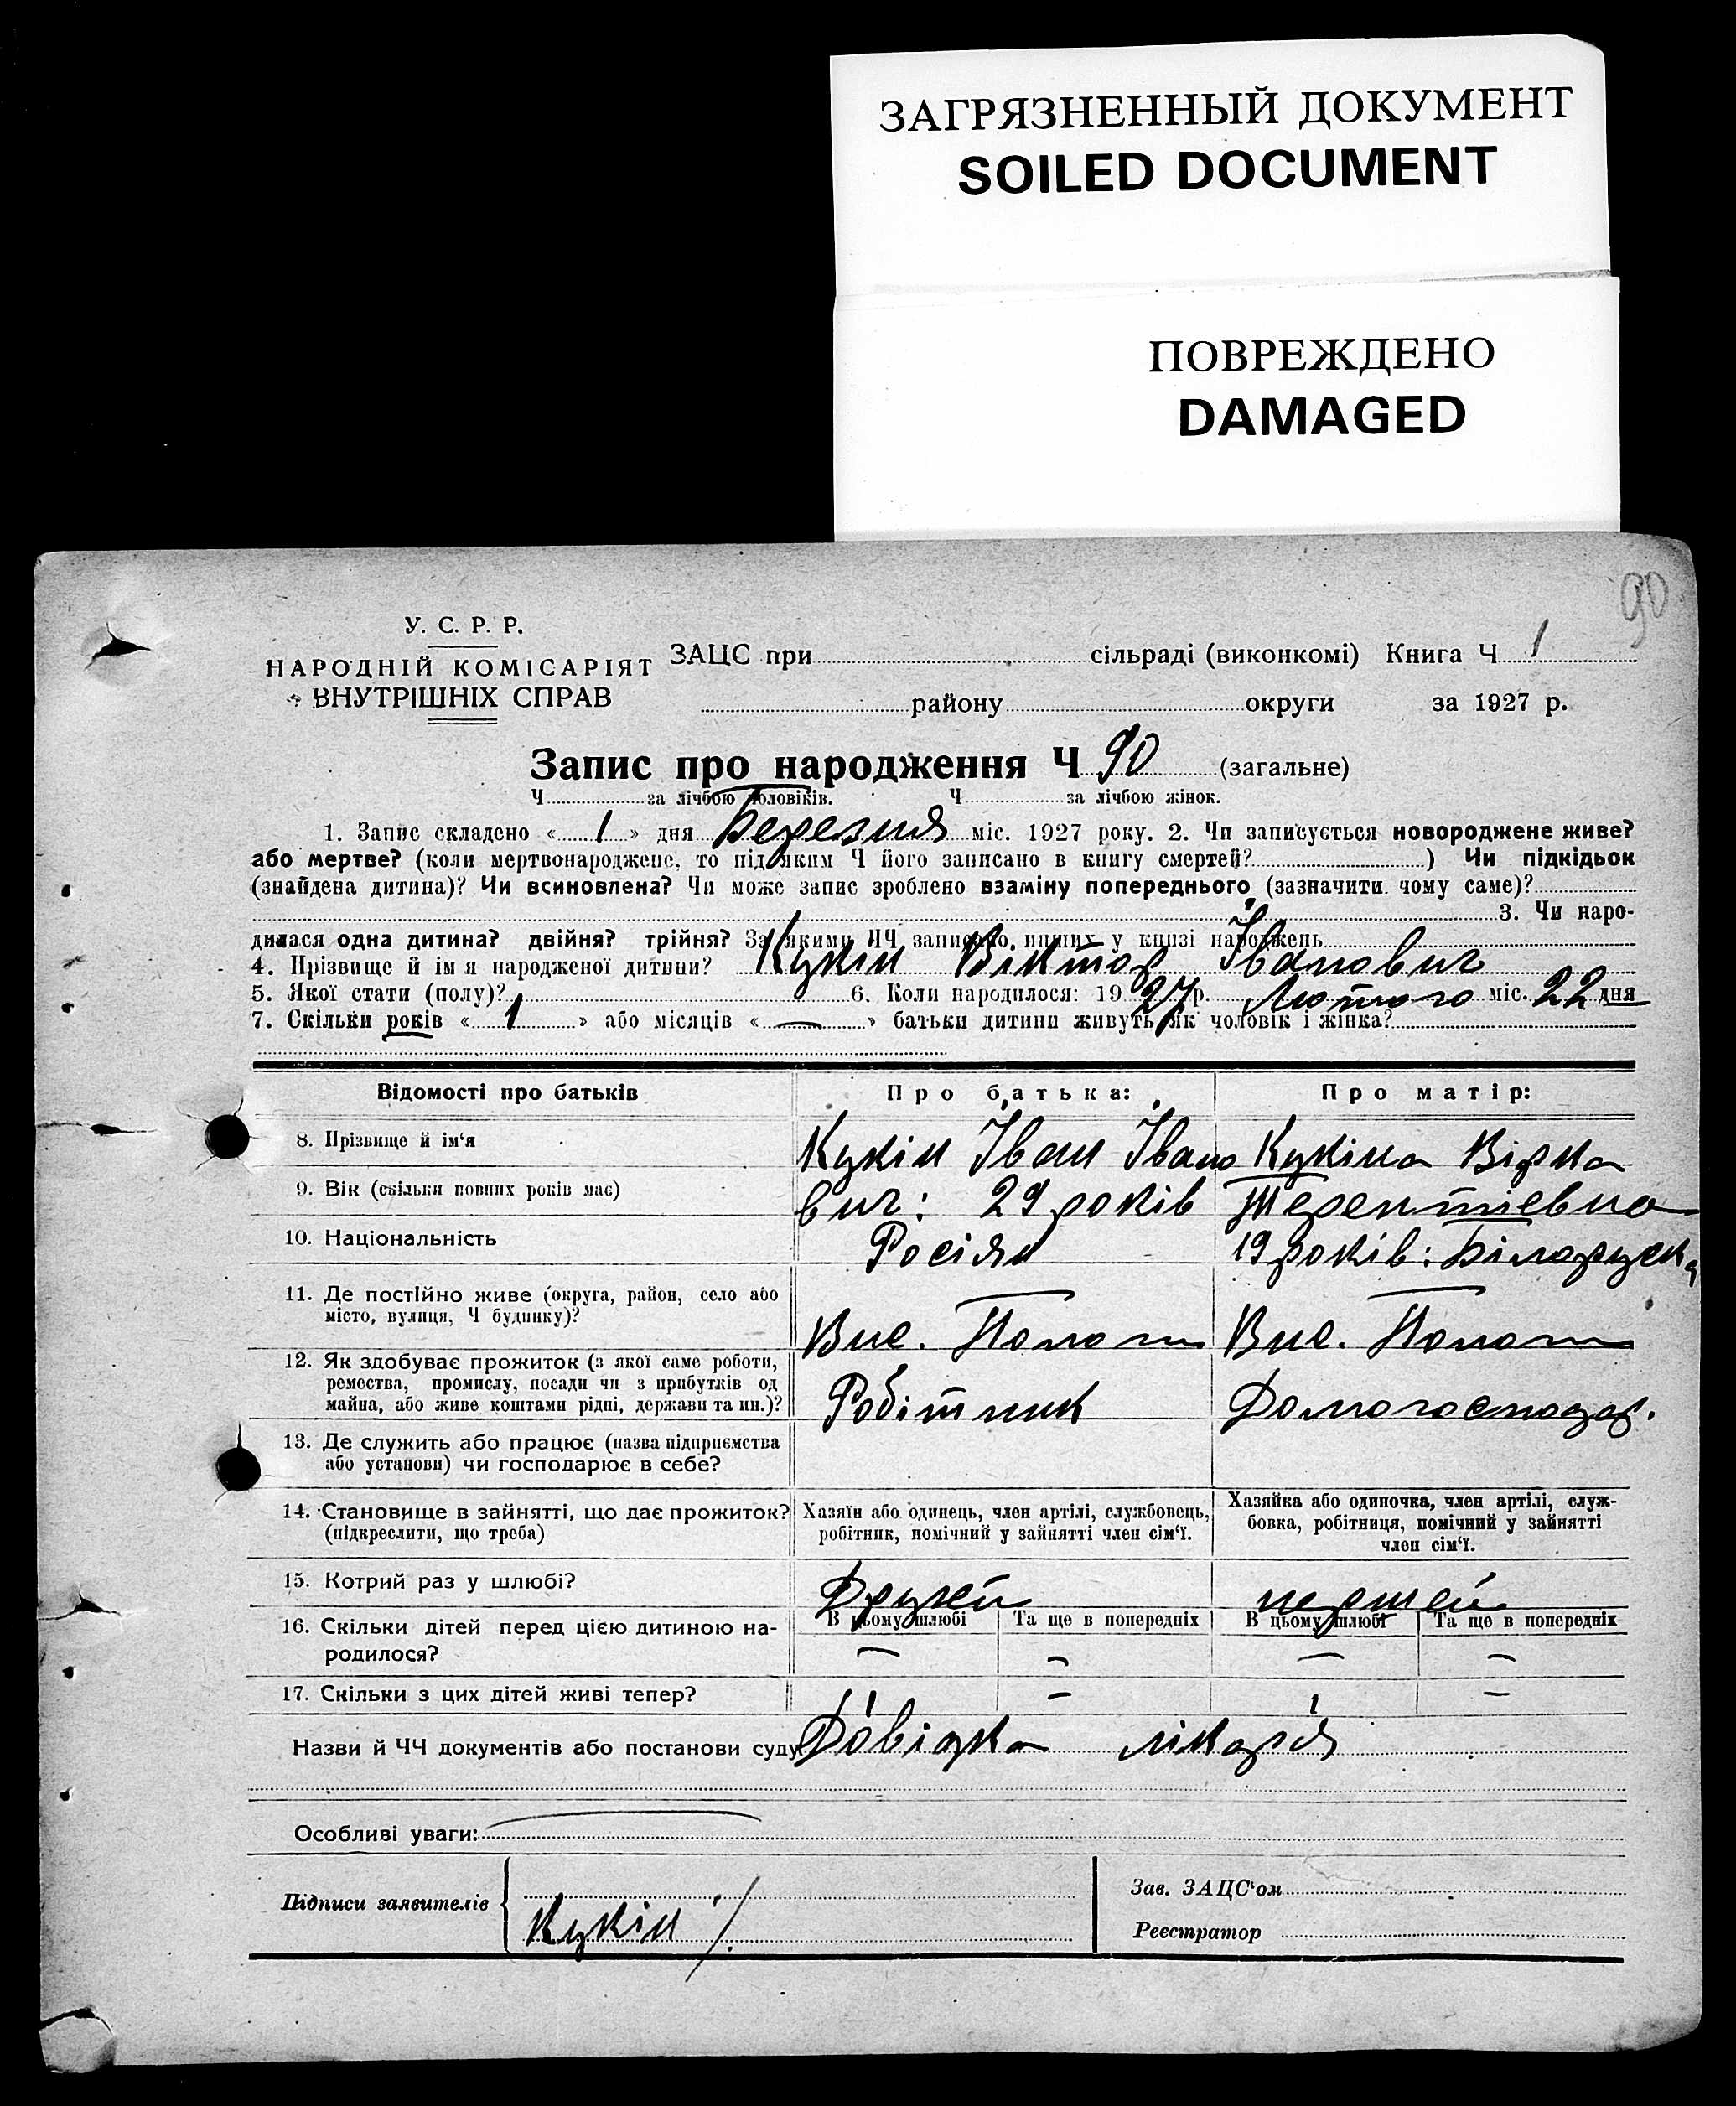 ЗАГРЯЗНЕННЫЙ ДОКУМЕНТ
SOILED DOCUMENT
ПОВРЕЖДЕНО
DAMAGED
90
У. С. Р. Р.
НАРОДНІЙ КОМІСАРІЯТ
ВНУТРІШНІХ СПРАВ
ЗАЦС при сільраді (виконкомі) Книга Ч 1
району округи за 1927 р.
Запис про народження Ч 90 (загальне)
Ч за лічбою чоловіків. Ч за лічбою жінок.
1. Запис складено « 1 » дня Березня міс. 1927 року. 2. Чи записується новороджене живе?
або мертве? (коли мертвонароджене, то під яким Ч його записано в книгу смертей? ) Чи підкідьок
(знайдена дитина)? Чи всиновлена? Чи може запис зроблено взаміну попереднього (зазначити чому саме)?
3. Чи наро-
дилася одна дитина? двійня? трійня? За якими ЧЧ записано инших у книзі народжень
4. Прізвище й ім я народженої дитини? Кукін Віктор Іванович
5. Якої стати (полу)? 6. Коли народилося: 1927 р. Лютого міс. 22 дня
7. Скільки років « 1 » або місяців « — » батьки дитини живуть як чоловік і жінка?
Відомості про батьків Про батька: Про матір:
8. Прізвище й ім'я Кукін Іван Івано Кукіна Вірка
9. Вік (скільки повних років має) вич: 29 років Терентієвна
10. Національність Росіян 19 років: Біларуска
11. Де постійно живе (округа, район, село або
місто, вулиця, Ч будинку)? Вис. Пологи Вис. Пологи
12. Як здобуває прожиток (з якої саме роботи,
ремества, промислу, посади чи з прибутків од
майна, або живе коштами рідні, держави та ин.)? Робітник Домогосподар.
13. Де служить або працює (назва підприємства
або установи) чи господарює в себе?
14. Становище в зайнятті, що дає прожиток?
(підкреслити, що треба)
Хазяїн або одинець, член артілі, службовець,
робітник, помічний у зайнятті член сім'ї.
Хазяйка або одиночка, член артілі, служ-
бовка, робітниця, помічний у зайнятті
член сім'ї.
15. Котрий раз у шлюбі? Другей першей
16. Скільки дітей перед цією дитиною на-
родилося?
В цьому шлюбі Та ще в попередніх В цьому шлюбі Та ще в попередніх
— — — —
17. Скільки з цих дітей живі тепер? — —
Назви й ЧЧ документів або постанови суду Довідка лікаря
Особливі уваги:
Підписи заявителів Кукін
Зав. ЗАЦС'ом
Реєстратор